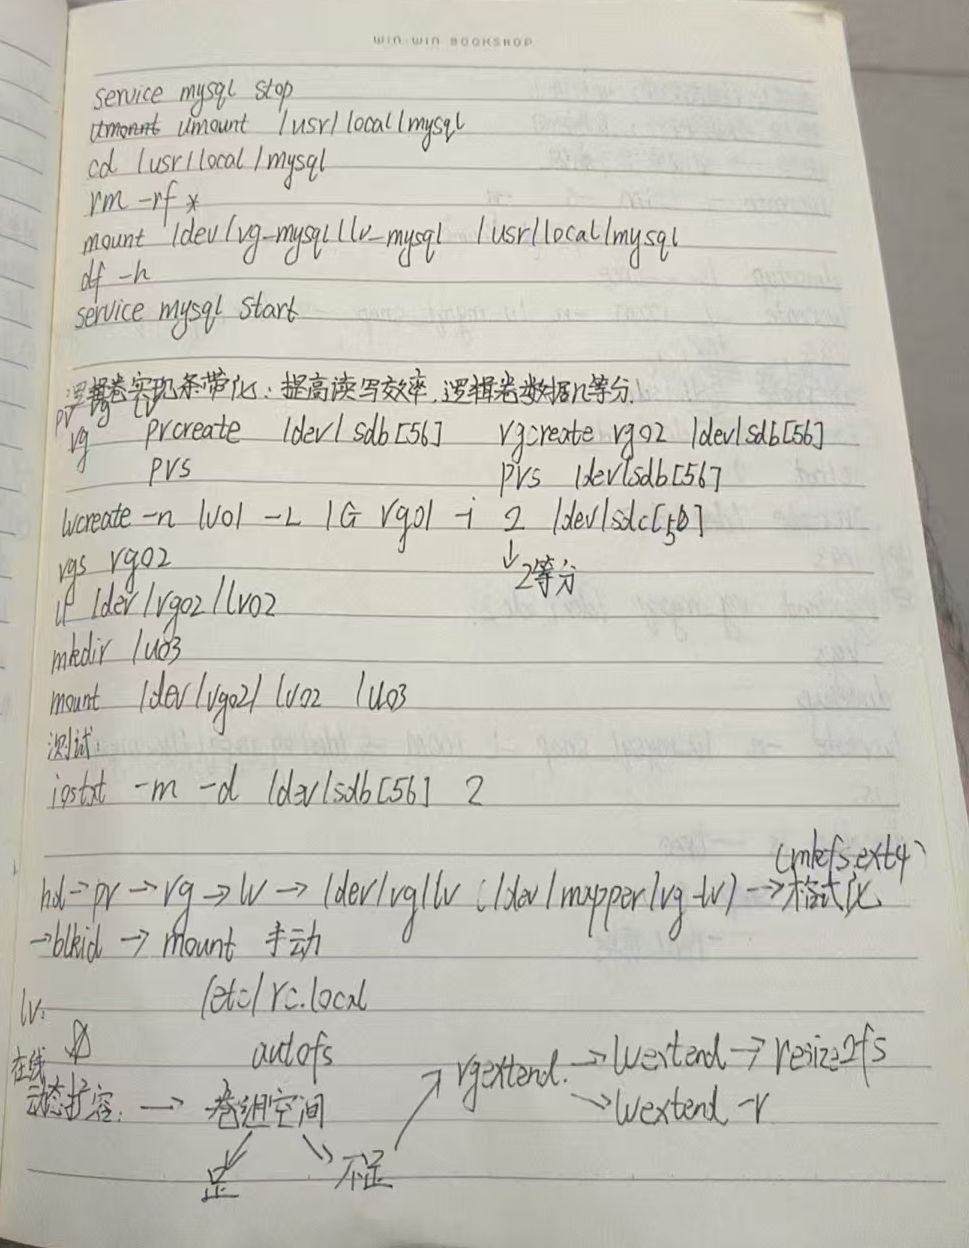 WIN-WIN BOOKSHOP
service mysql stop
umount /usr/local/mysql
cd /usr/local/mysql
rm -rf *
mount /dev/vg_mysql/lv_mysql /usr/local/mysql
df -h
service mysql start
逻辑卷实现条带化：提高读写效率.逻辑卷数据n等分.
pv vg lv
vg pvcreate /dev/sdb[56] vgcreate vg02 /dev/sdb[56]
pvs pvs /dev/sdb[56]
lvcreate -n lv01 -L 1G vg01 -i 2 /dev/sdc[56]
vgs vg02 ↓2等分
/dev/vg02/lv02
mkdir /u03
mount /dev/vg02/lv02 /u03
测试:
-m -d /dev/sdb[56] 2
(mkefs.ext4)
hd→pv→vg→lv→/dev/vg/lv (/dev/mapper/vg-lv)→格式化
→blkid → mount 手动
/etc/rc.local
lv:
autofs
在线
动态扩容: → 卷组空间
vgextend. →lvextend→resize2fs
→lvextend -r
足 不足